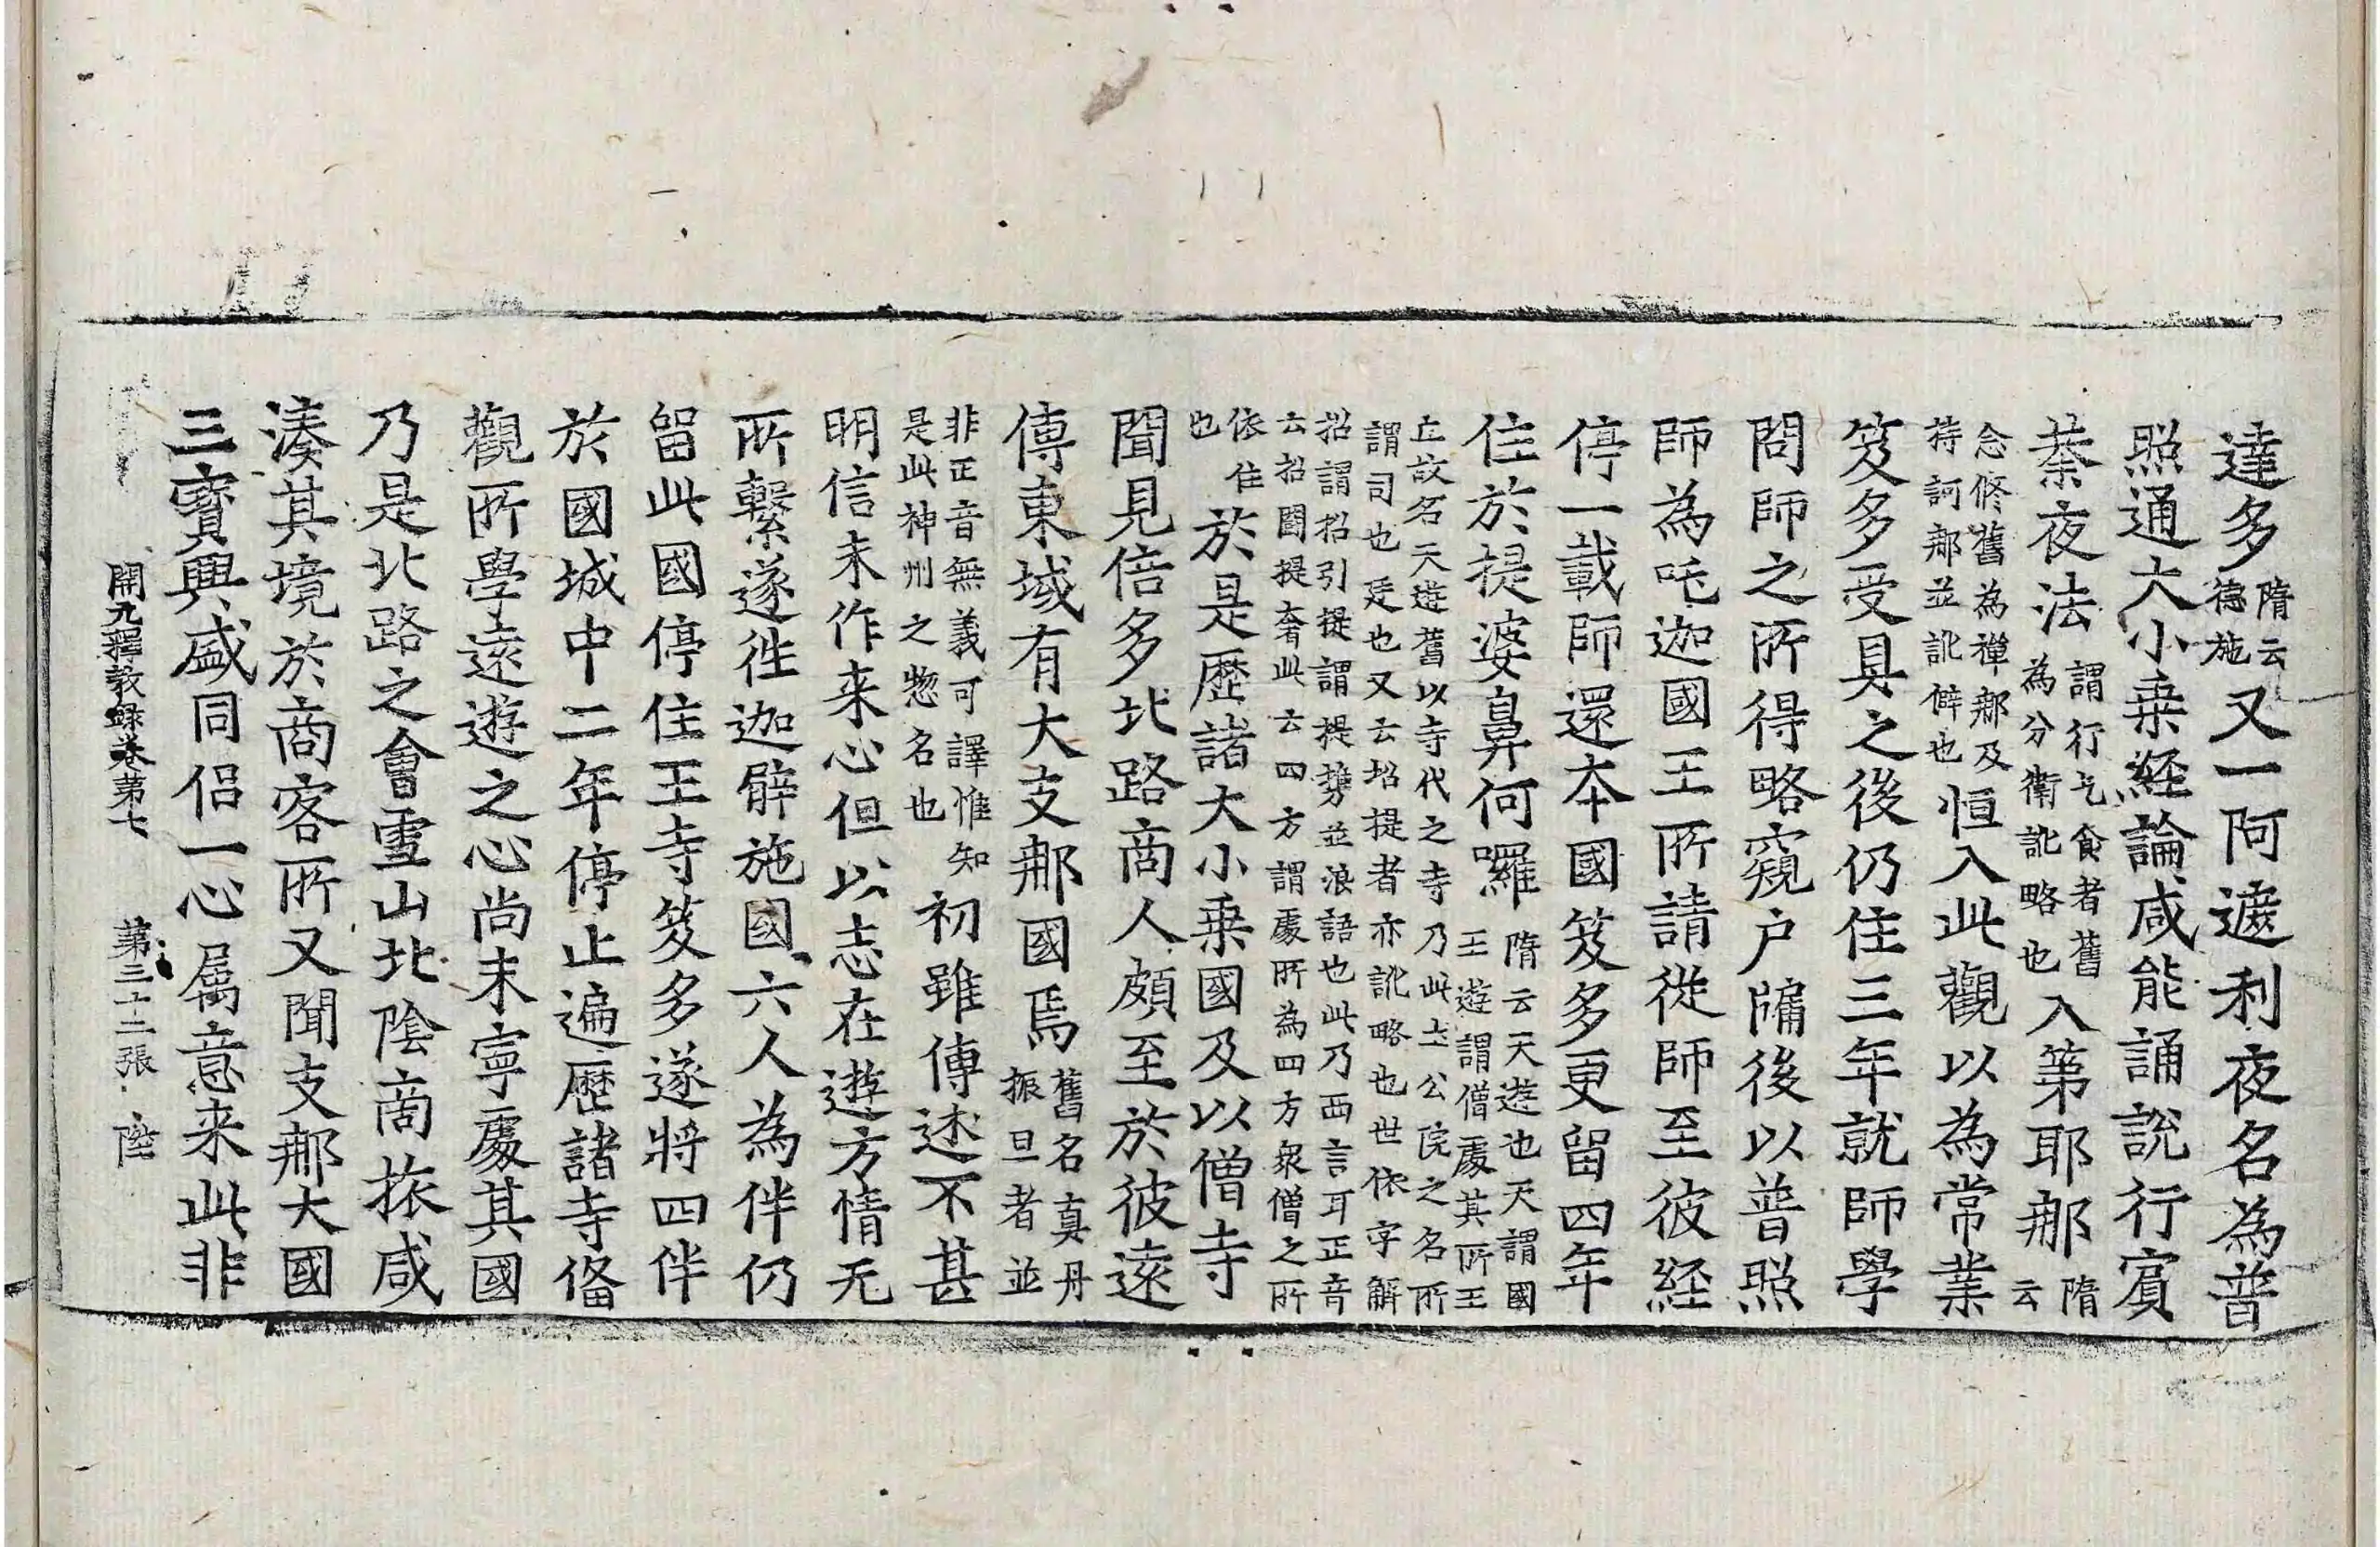 達多隋云德施又一阿遮利夜名為普
照通大小乗経論咸能誦說行賓
荼夜法謂行乞食者舊為分衛訛略也入第耶那隋云
念修舊為禪那及持訶那並訛僻也恒入此觀以為常業
笈多受具之後仍住三年就師學
問師之所得略窺户牖後以普照
師為吒迦國王所請従師至彼経
停一載師還本國笈多更留四年
住於提婆鼻何囉隋云天遊也天謂國王遊謂僧處其所王
立故名天遊舊以寺代之寺乃此土公院之名所
謂司也廷也又云招提者亦訛略也世依字解
招謂招引提謂提㩗並浪語也此乃西言耳正音
云招鬪提奢此云四方謂處所為四方衆僧之所
依住也於是歷諸大小乗國及以僧寺
聞見倍多北路商人頗至於彼遠
傳東域有大支那國焉舊名真丹振旦者並
非正音無義可譯惟知是此神州之惣名也初雖傳述不甚
明信未作来心但以志在遊方情无
所繫遂往迦臂施國六人為伴仍
留此國停住王寺笈多遂將四伴
於國城中二年停止遍歷諸寺俻
觀所學遠遊之心尚未寧處其國
乃是北路之會雪山北陰商旅咸
湊其境於商客所又聞支那大國
三寳興盛同侣一心属意来此非
開元釋教録卷第七　第三十二張　陞